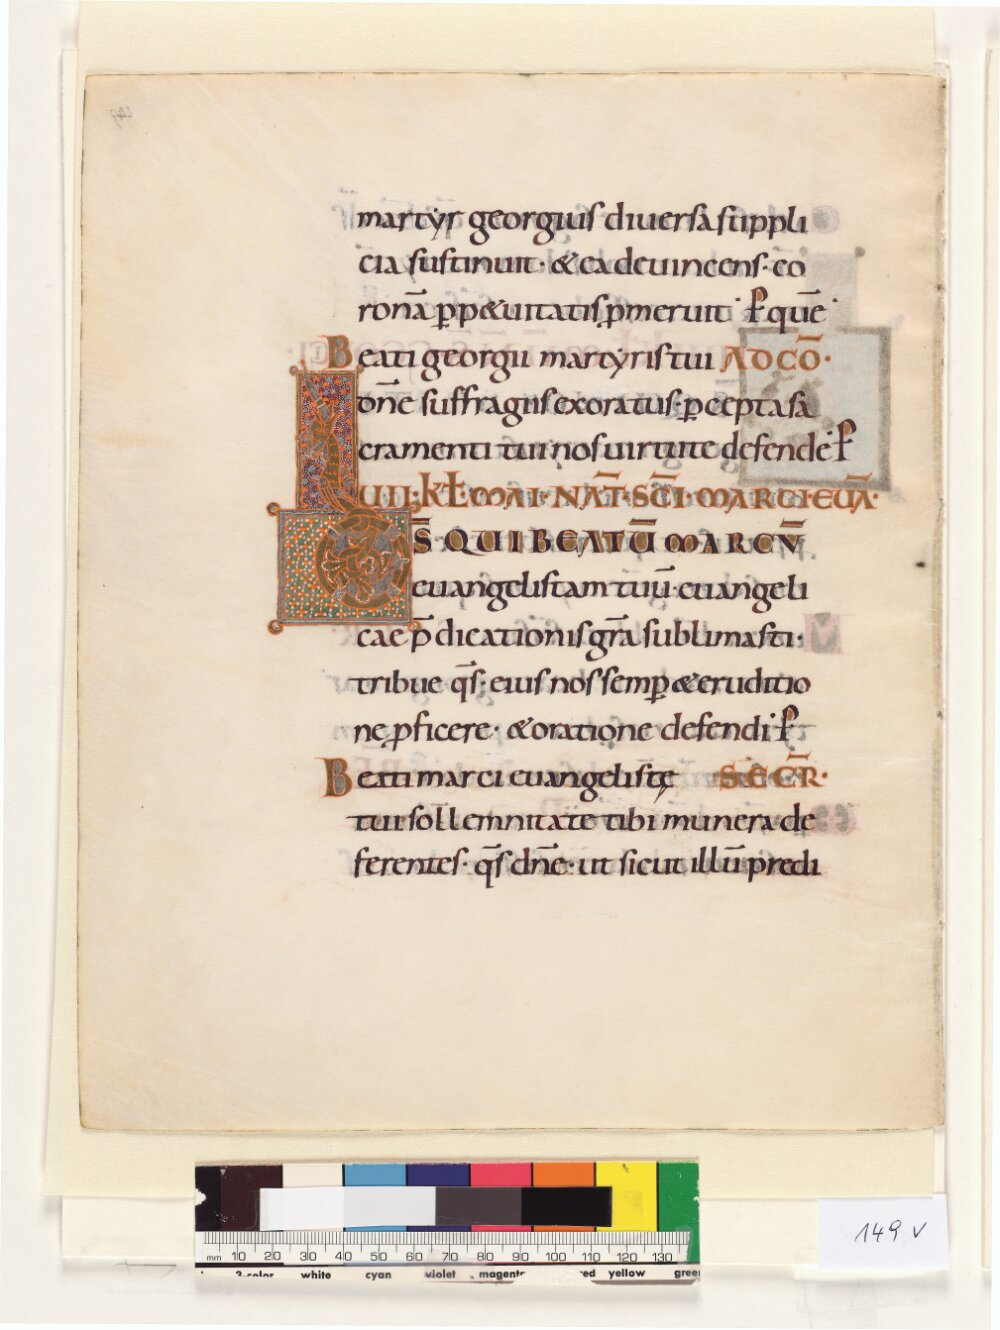 martyr georgius diuersa suppli
cia sustinuit· & ea deuincens· co
ronā p̄p&uitatis p̱meruit· P̄ quē·
Beati georgii martyris tui AD CŌ·
dn̄e suffragiis exoratus· p̱cepta sa
cramenti tui nos uirtute defende· P̄
VII· KŁ· MAI· NAT̄· SC̄I· MARCI· EUA̅·
D̄S QUI BEATŪ MARCV̄
euangelistam tuū· euangeli
cae p̄dicationis gr̄a sublimasti·
tribue q̄s· eius nos semp̱ & eruditio
ne ꝓficere· & oratione defendi· P̄
Beati marci euangelistę SECR̄·
tui sollemnitate tibi munera de
ferentes· q̄s dn̄e· ut sicut illū predi
149 v
mm 10 20 30 40 50 60 70 80 90 100 110 120 130
3-color white cyan violet magenta red yellow green